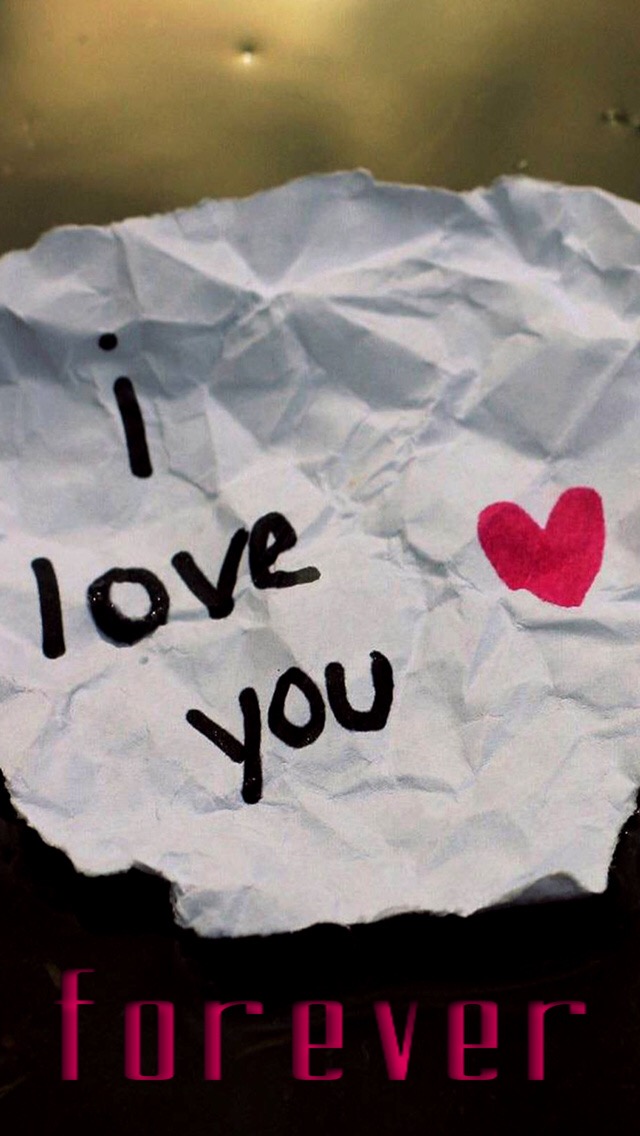 i
love
you
forever